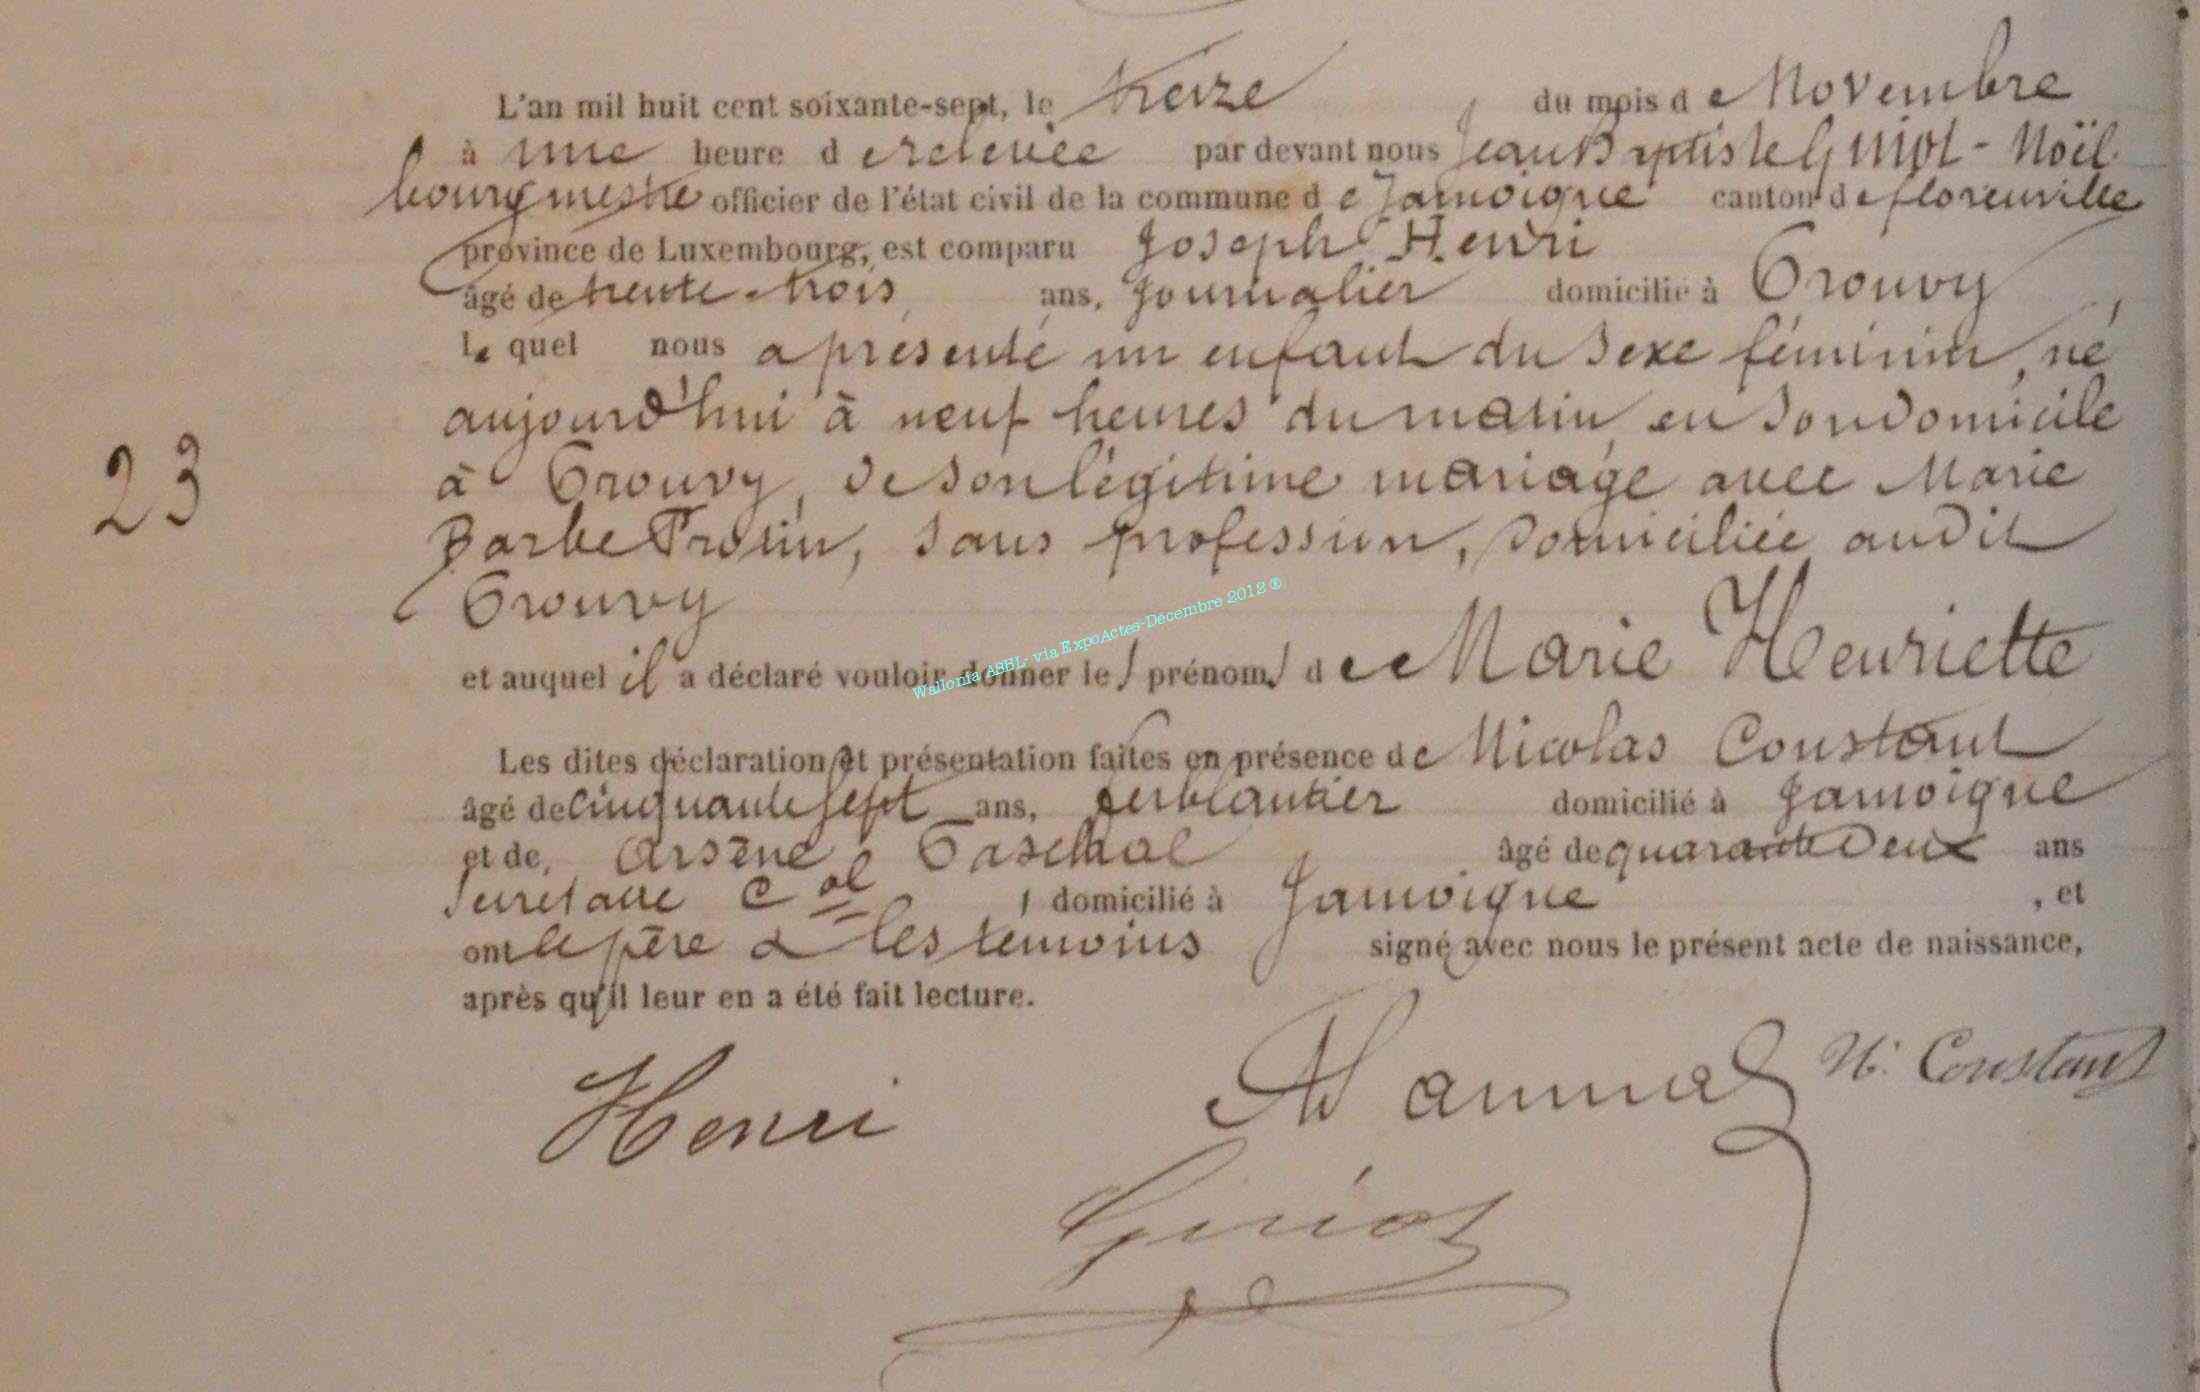 L'an mil huit cent soixante-sept, le treize du mois de Novembre
à une heure de relevée par devant nous Jean Baptiste Guiot-Noël
bourgmestre officier de l'état civil de la commune de Jamoigne canton de florenville
province de Luxembourg, est comparu Joseph Henri
âgé de trente-trois ans, Journalier domicilié à Prouvy,
le quel nous a présenté un enfant du sexe féminin, né
aujourd'hui à neuf heures du matin en son domicile
à Prouvy, de son légitime mariage avec Marie
Barbe, sans profession, domiciliée audit
Prouvy
23
et auquel il a déclaré vouloir donner les prénoms de Marie Henriette
Wallonia ASBL via ExpoActes-Décembre 2012 ®
Les dites déclaration et présentation faites en présence de Nicolas Constant
âgé de cinquante sept ans, ferblantier domicilié à Jamoigne
et de, Arsène Paschal âgé de quarante Deux ans
Secretaire Cal, domicilié à Jamoigne, et
ont le père & les temoins signé avec nous le présent acte de naissance,
après qu'il leur en a été fait lecture.
Henri N. Constant
Guiot